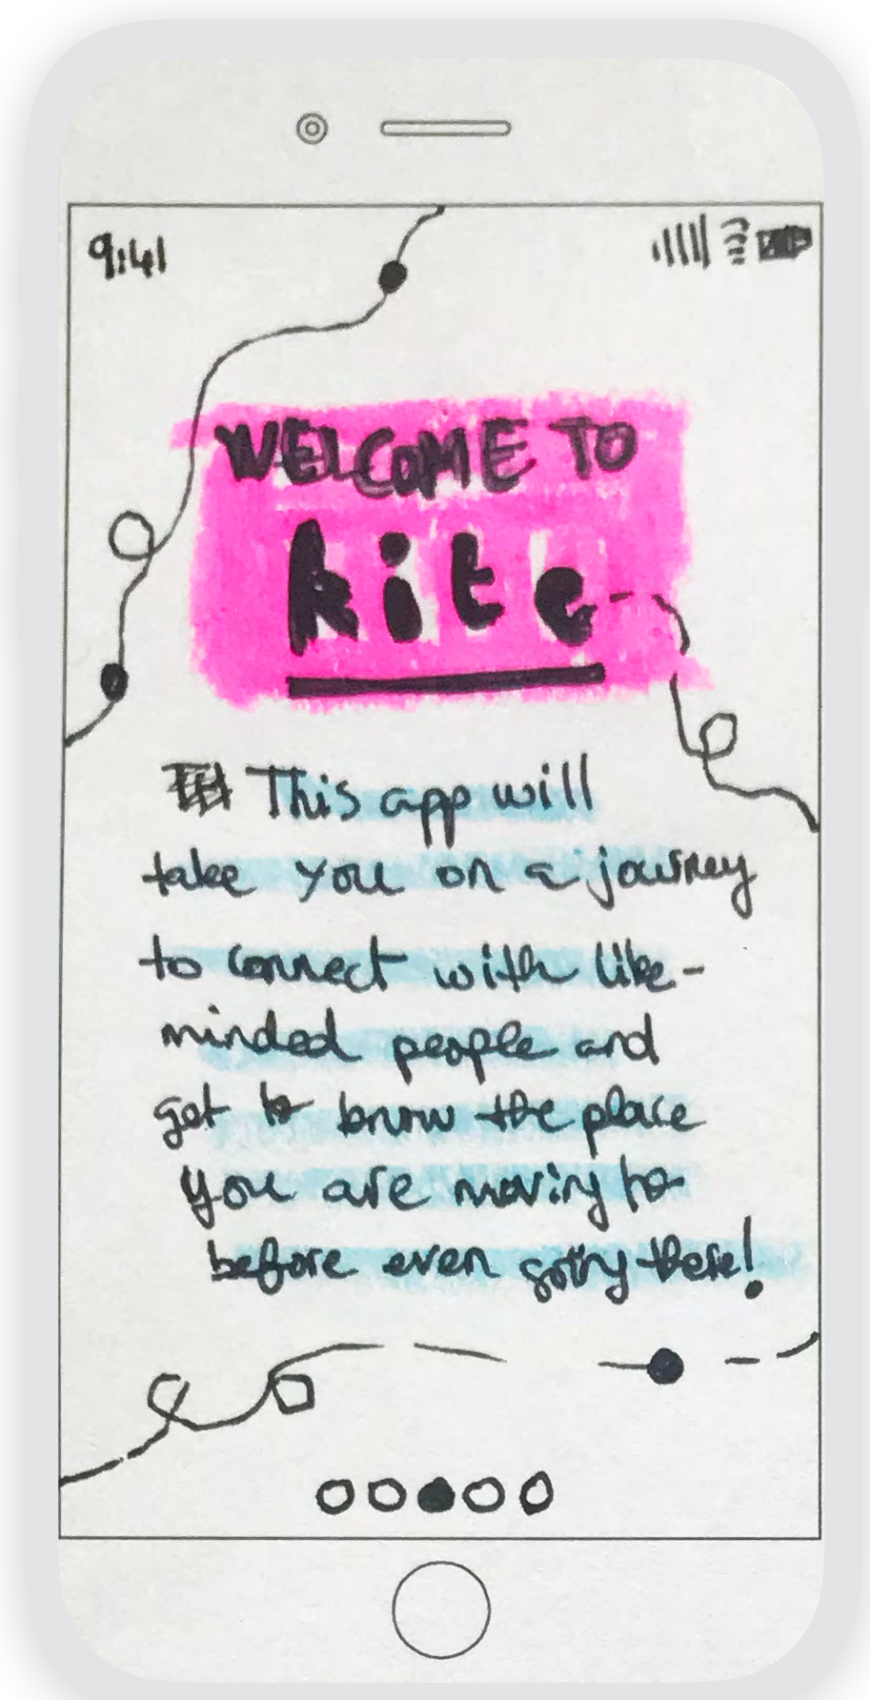 9:41
WELCOME TO
kite
This app will
take you on a journey
to connect with like-
minded people and
get to know the place
you are moving to
before even going there!